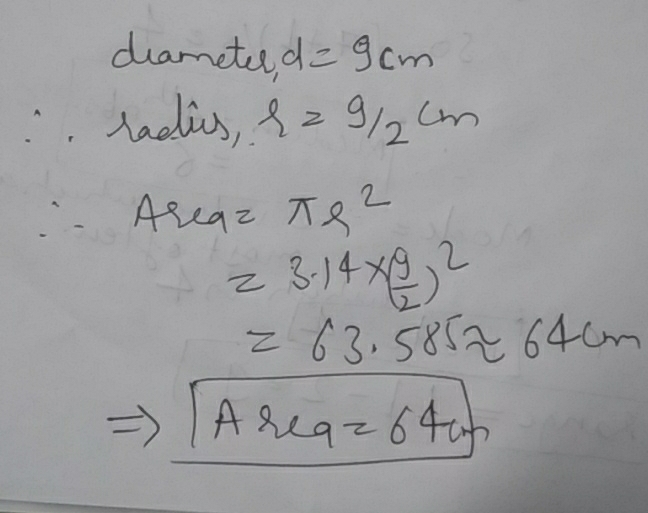 diameter, d = 9cm
∴ radius, r = 9/2 cm
∴ Area = πr²
= 3.14 × (9/2)²
= 63.585 ≈ 64cm
⇒ Area = 64cm